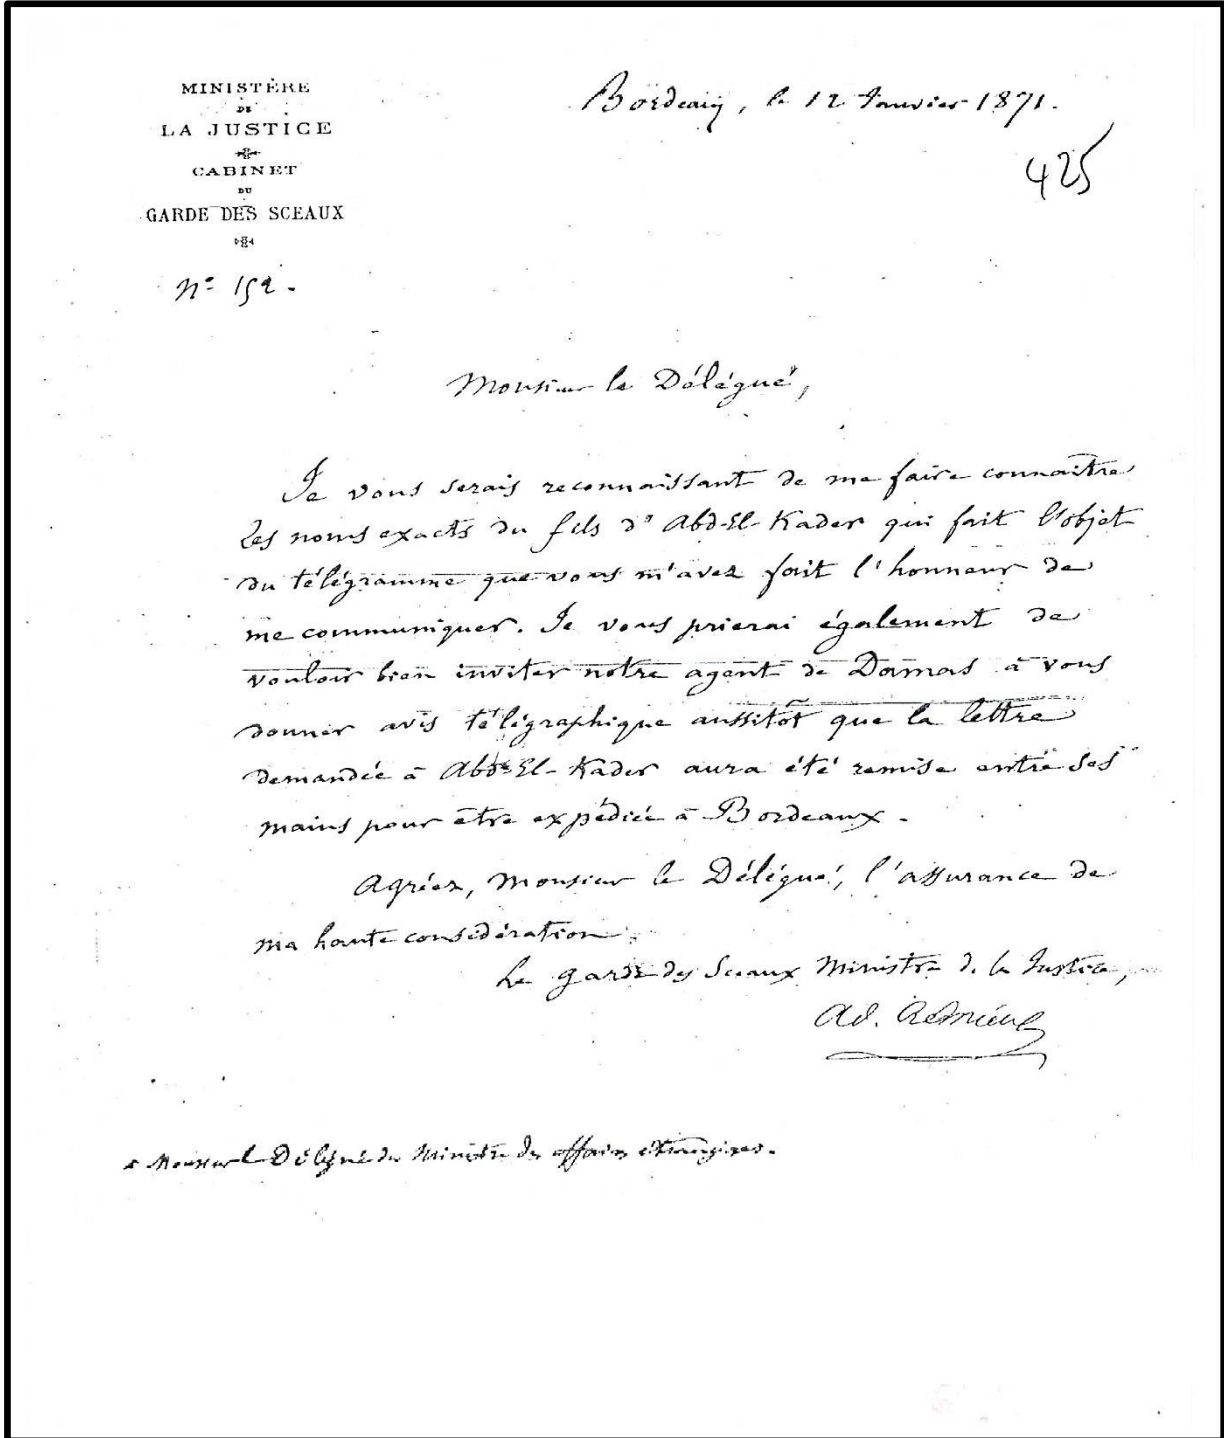 MINISTÈRE
DE
LA JUSTICE
CABINET
DU
GARDE DES SCEAUX
Nº 152.
Bordeaux, le 12 Janvier 1871.
425
Monsieur le Délégué,
Je vous serais reconnaissant de me faire connaître
les noms exacts du fils d'Abd-El-Kader qui fait l'objet
du télégramme que vous m'avez fait l'honneur de
me communiquer. Je vous prierai également de
vouloir bien inviter notre agent de Damas à vous
donner avis télégraphique aussitôt que la lettre
demandée à Abd-El-Kader aura été remise entre ses
mains pour être expédiée à Bordeaux.
Agréez, Monsieur le Délégué, l'assurance de
ma haute considération.
Le garde des Sceaux Ministre de la Justice,
Ad. Crémieux
à Monsieur le Délégué du Ministre des affaires étrangères.